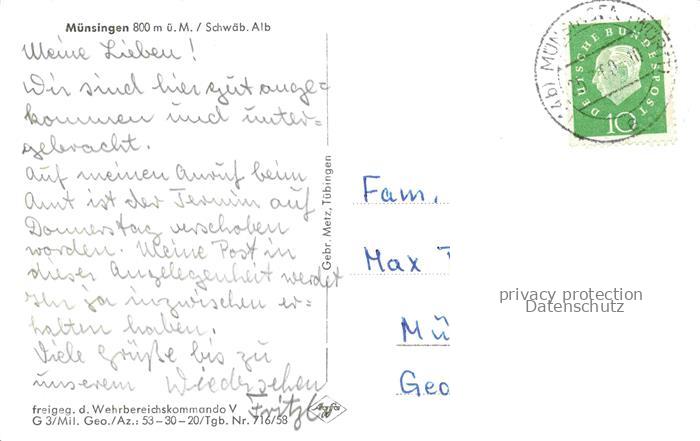 Münsingen 800 m ü. M. / Schwäb. Alb
Meine Lieben!
Wir sind hier gut ange=
kommen und unter=
gebracht.
Auf meinen Anruf beim
Amt ist der Termin auf
Donnerstag verschoben
worden. Meine Post in
dieser Angelegenheit werdet
Ihr ja inzwischen er=
halten haben.
Viele Grüße bis zu
unserem Wiedersehen
Fritzl
freigeg. d. Wehrbereichskommando V
G 3/Mil. Geo./Az.: 53-30-20/Tgb. Nr. 716/58
Agfa
Gebr. Metz, Tübingen
MÜNSINGEN
DEUTSCHE BUNDESPOST
10
Fam.
Max T
Mü
Geo
privacy protection
Datenschutz